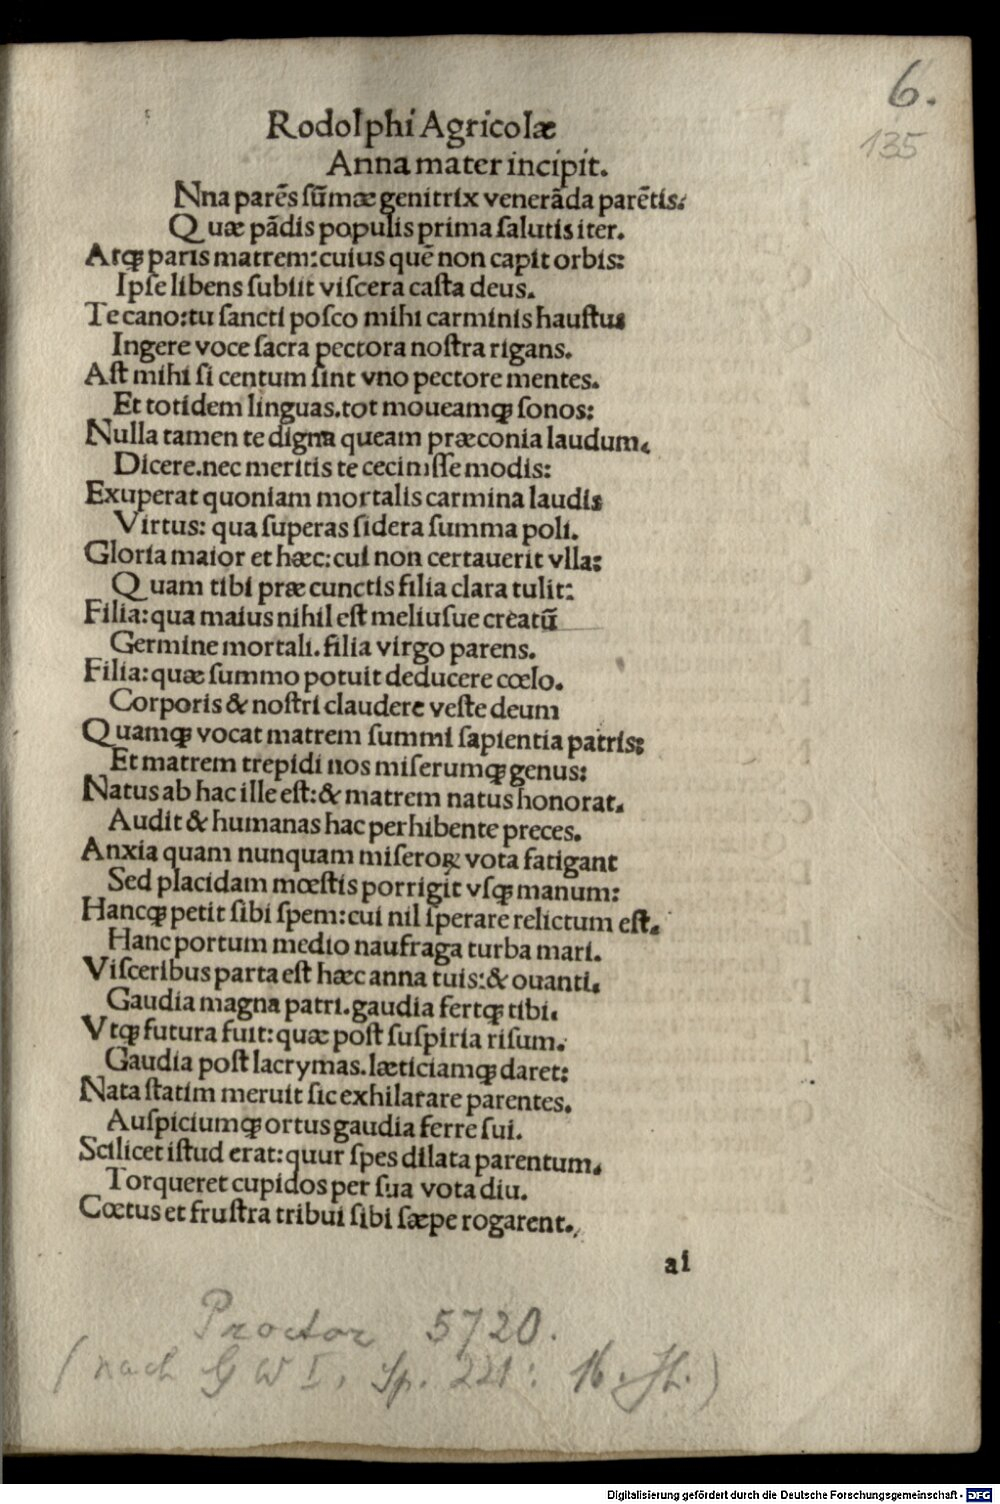 6.
135
Rodolphi Agricolæ
Anna mater incipit.
Nna parēs sūmæ genitrix venerāda parētis:
Quæ pādis populis prima salutis iter.
Atqꝫ paris matrem: cuius quē non capit orbis:
Ipse libens subiit viscera casta deus.
Te cano: tu sancti posco mihi carminis haustus
Ingere voce sacra pectora nostra rigans.
Ast mihi si centum sint vno pectore mentes.
Et totidem linguas. tot moueamqꝫ sonos:
Nulla tamen te digna queam præconia laudum.
Dicere. nec meritis te cecinisse modis:
Exuperat quoniam mortalis carmina laudis
Virtus: qua superas sidera summa poli.
Gloria maior et hæc: cui non certauerit vlla:
Quam tibi præ cunctis filia clara tulit:
Filia: qua maius nihil est meliusue creatū
Germine mortali. filia virgo parens.
Filia: quæ summo potuit deducere cœlo.
Corporis & nostri claudere veste deum
Quamqꝫ vocat matrem summi sapientia patris:
Et matrem trepidi nos miserumqꝫ genus:
Natus ab hac ille est: & matrem natus honorat.
Audit & humanas hac perhibente preces.
Anxia quam nunquam miseroꝝ vota fatigant
Sed placidam mœstis porrigit vsqꝫ manum:
Hancqꝫ petit sibi spem: cui nil sperare relictum est.
Hanc portum medio naufraga turba mari.
Visceribus parta est hæc anna tuis: & ouanti.
Gaudia magna patri. gaudia fertqꝫ tibi.
Vtqꝫ futura fuit: quæ post suspiria risum.
Gaudia post lacrymas. læticiamqꝫ daret:
Nata statim meruit sic exhilarare parentes.
Auspiciumqꝫ ortus gaudia ferre sui.
Scilicet istud erat: quur spes dilata parentum.
Torqueret cupidos per sua vota diu.
Cœtus et frustra tribui sibi sæpe rogarent.
ai
Proctor 5720.
(nach GW I, Sp. 221: 16. Jh.)
Digitalisierung gefördert durch die Deutsche Forschungsgemeinschaft - DFG